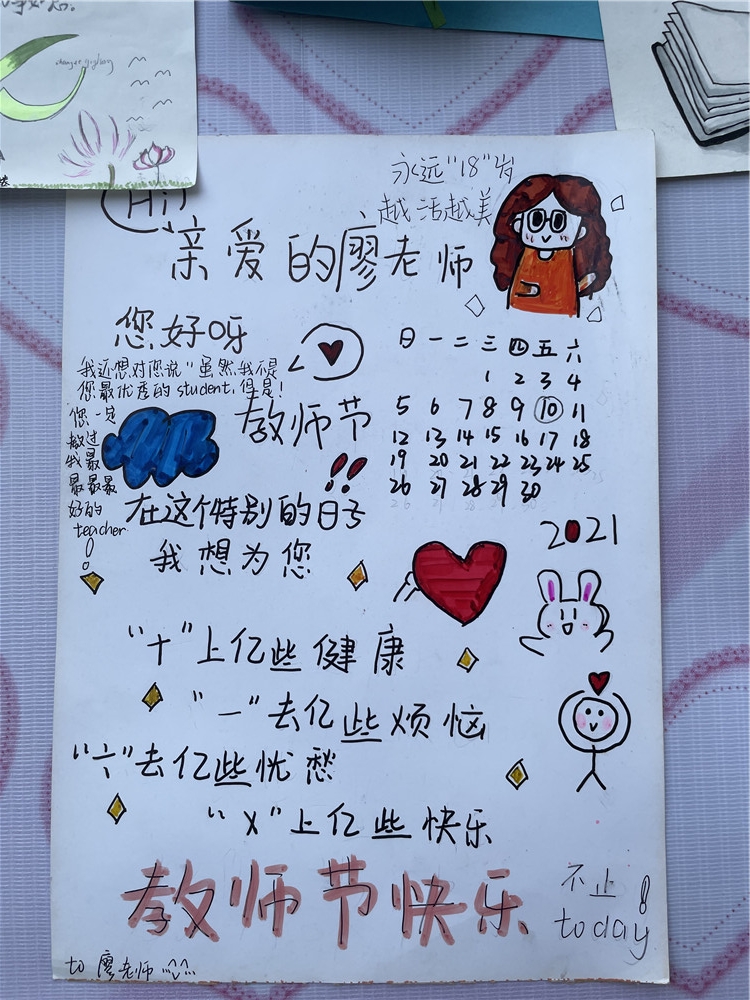 Hi
永远"18"岁
越活越美
亲爱的廖老师
您好呀
我还想对您说"虽然我不是
您最优秀的student,但是!
您一定
教过
我最
最最最
好的
teacher
!
教师节
!!
在这个特别的日子
我想为您
日一二三四五六
1 2 3 4
5 6 7 8 9 10 11
12 13 14 15 16 17 18
19 20 21 22 23 24 25
26 27 28 29 30
2021
"+"上亿些健康
"一"去亿些烦恼
"÷"去亿些忧愁
"x"上亿些快乐
教师节快乐
不止
today!
to 廖老师